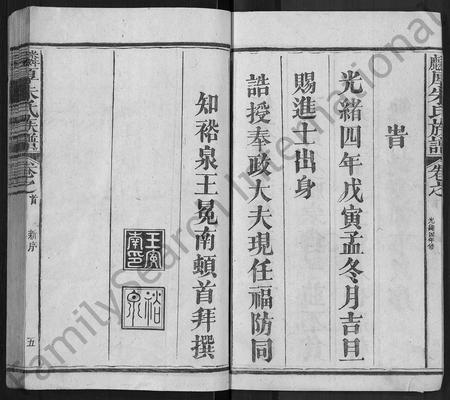 旹
光緒四年戊寅孟冬月吉旦
賜進士出身
誥授奉政大夫現任福防同
知裕泉王冕南頓首拜撰
王冕
南印
裕
泉
朱氏族譜
卷之首
新序
五
朱氏族譜
光緒四年修
FamilySearch International